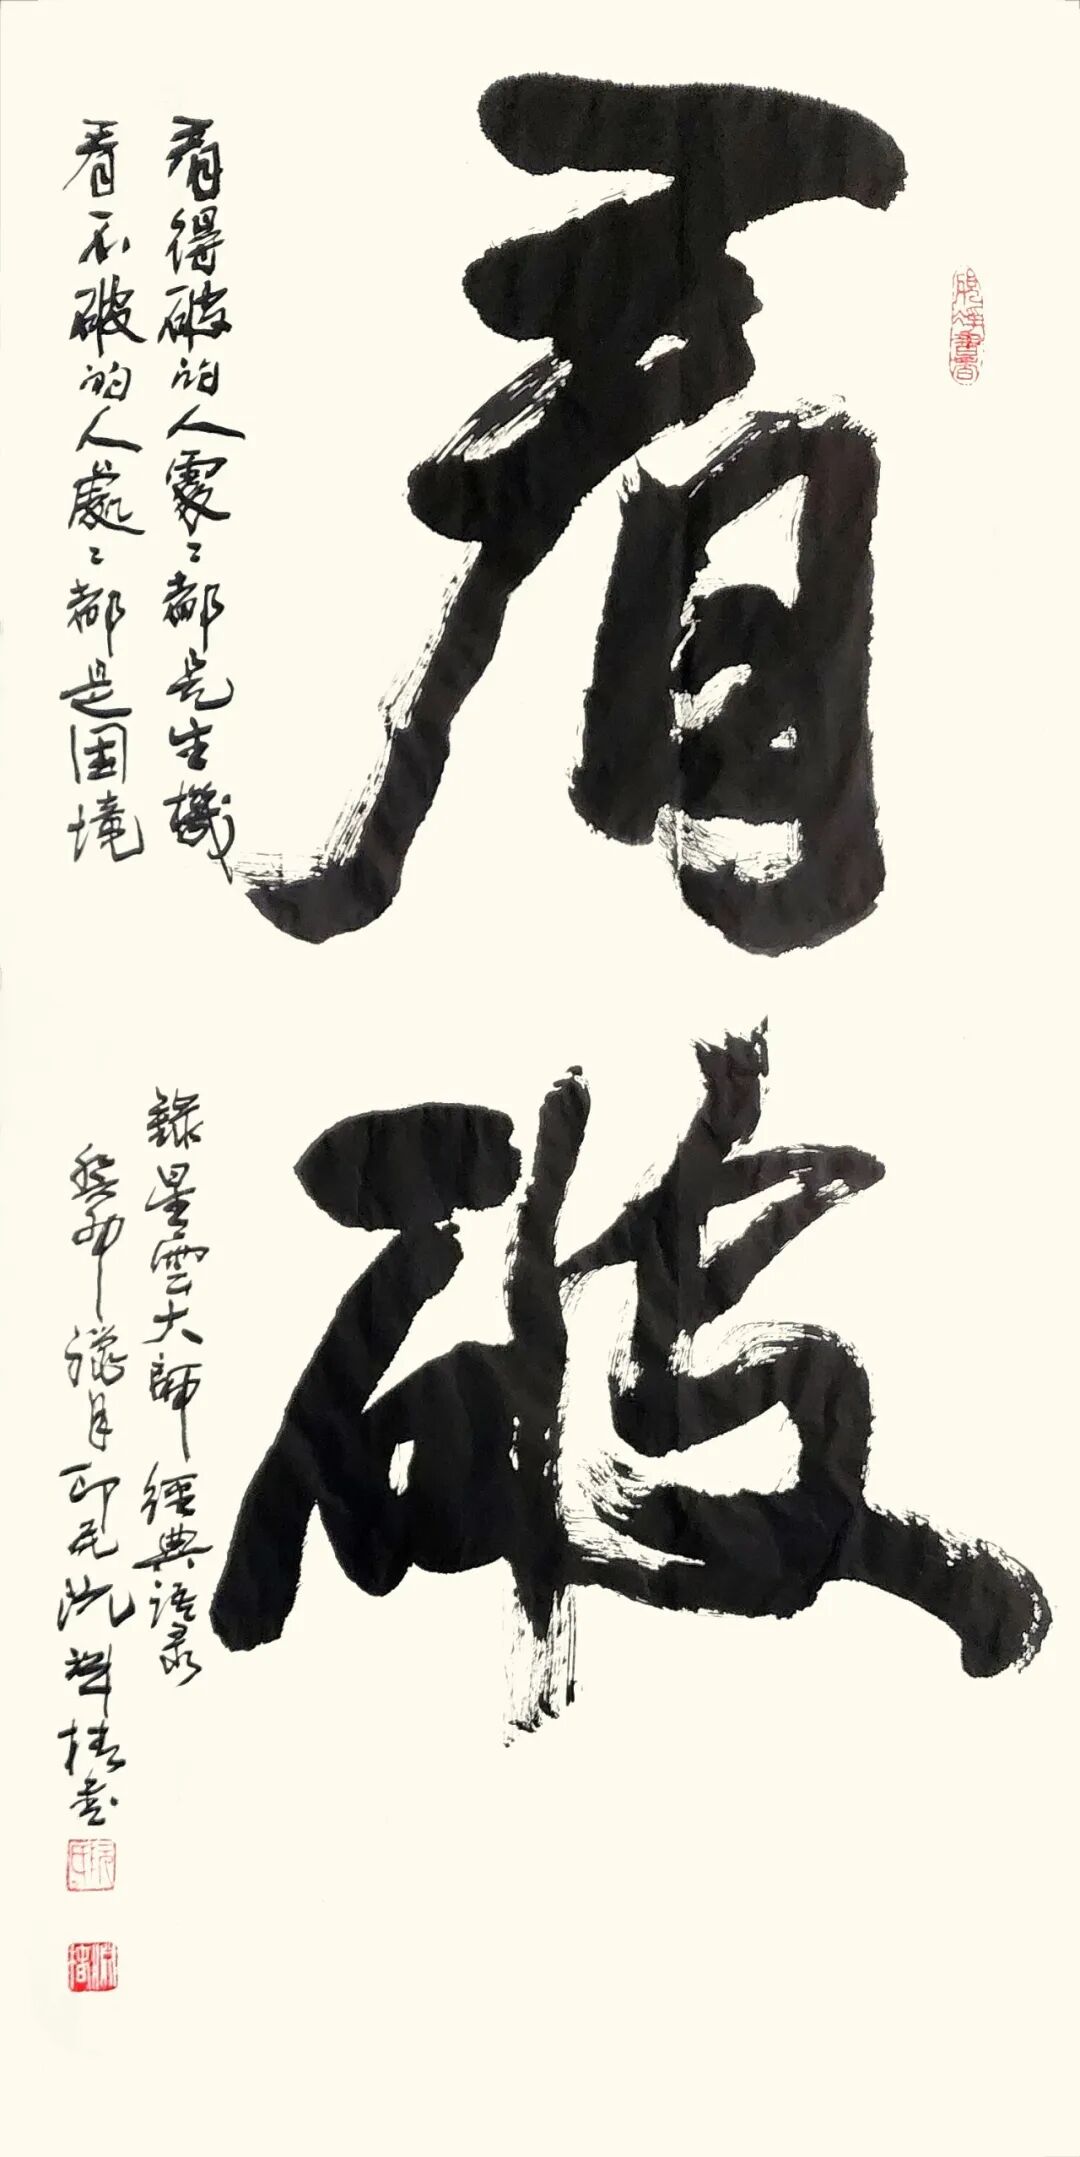 看破
看得破的人處々都是生機
看不破的人處々都是困境
錄星雲大師經典语录
癸卯臘月
書